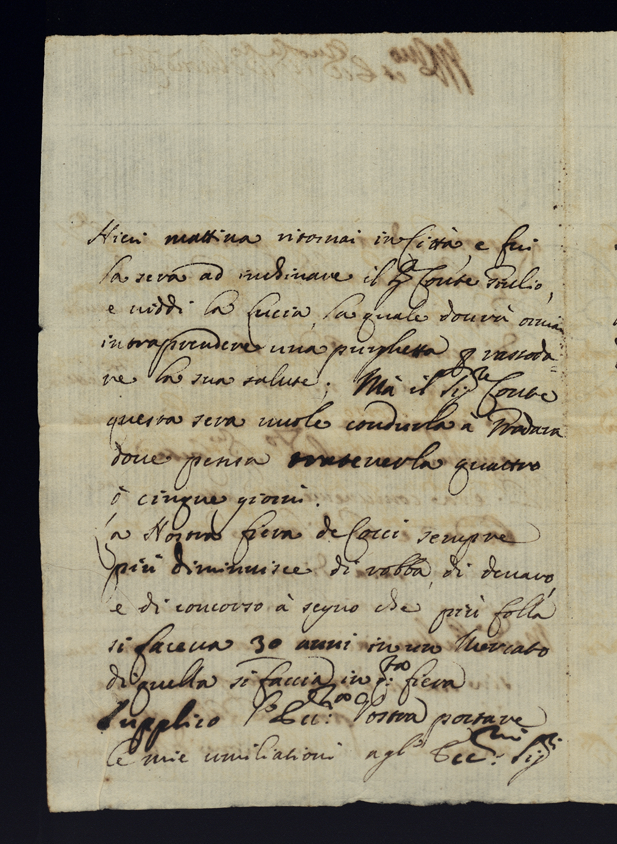 Hieri mattina ritornai in Città, e fui
la sera ad inchinare il Sig.r Conte Giulio,
e viddi la Lucia, la quale dovrà ormai
intraprendere una purghetta p rassoda-
re la sua salute; Mà il Sig.re Conte
questa sera vuole condurla à
dove pensa tratenerla quattro
ò cinque giorni.
La Nostra fiera de Cocci sempre
più diminuisce di robba, di denaro,
e di concorso à segno che più folla
si faceva 30 anni in un Mercato
di quella si faccia in q:sta fiera
Supplico V:a Ecc:za Vostra portare
le mie umiliationi agl' Ecc:mi Sig:ri